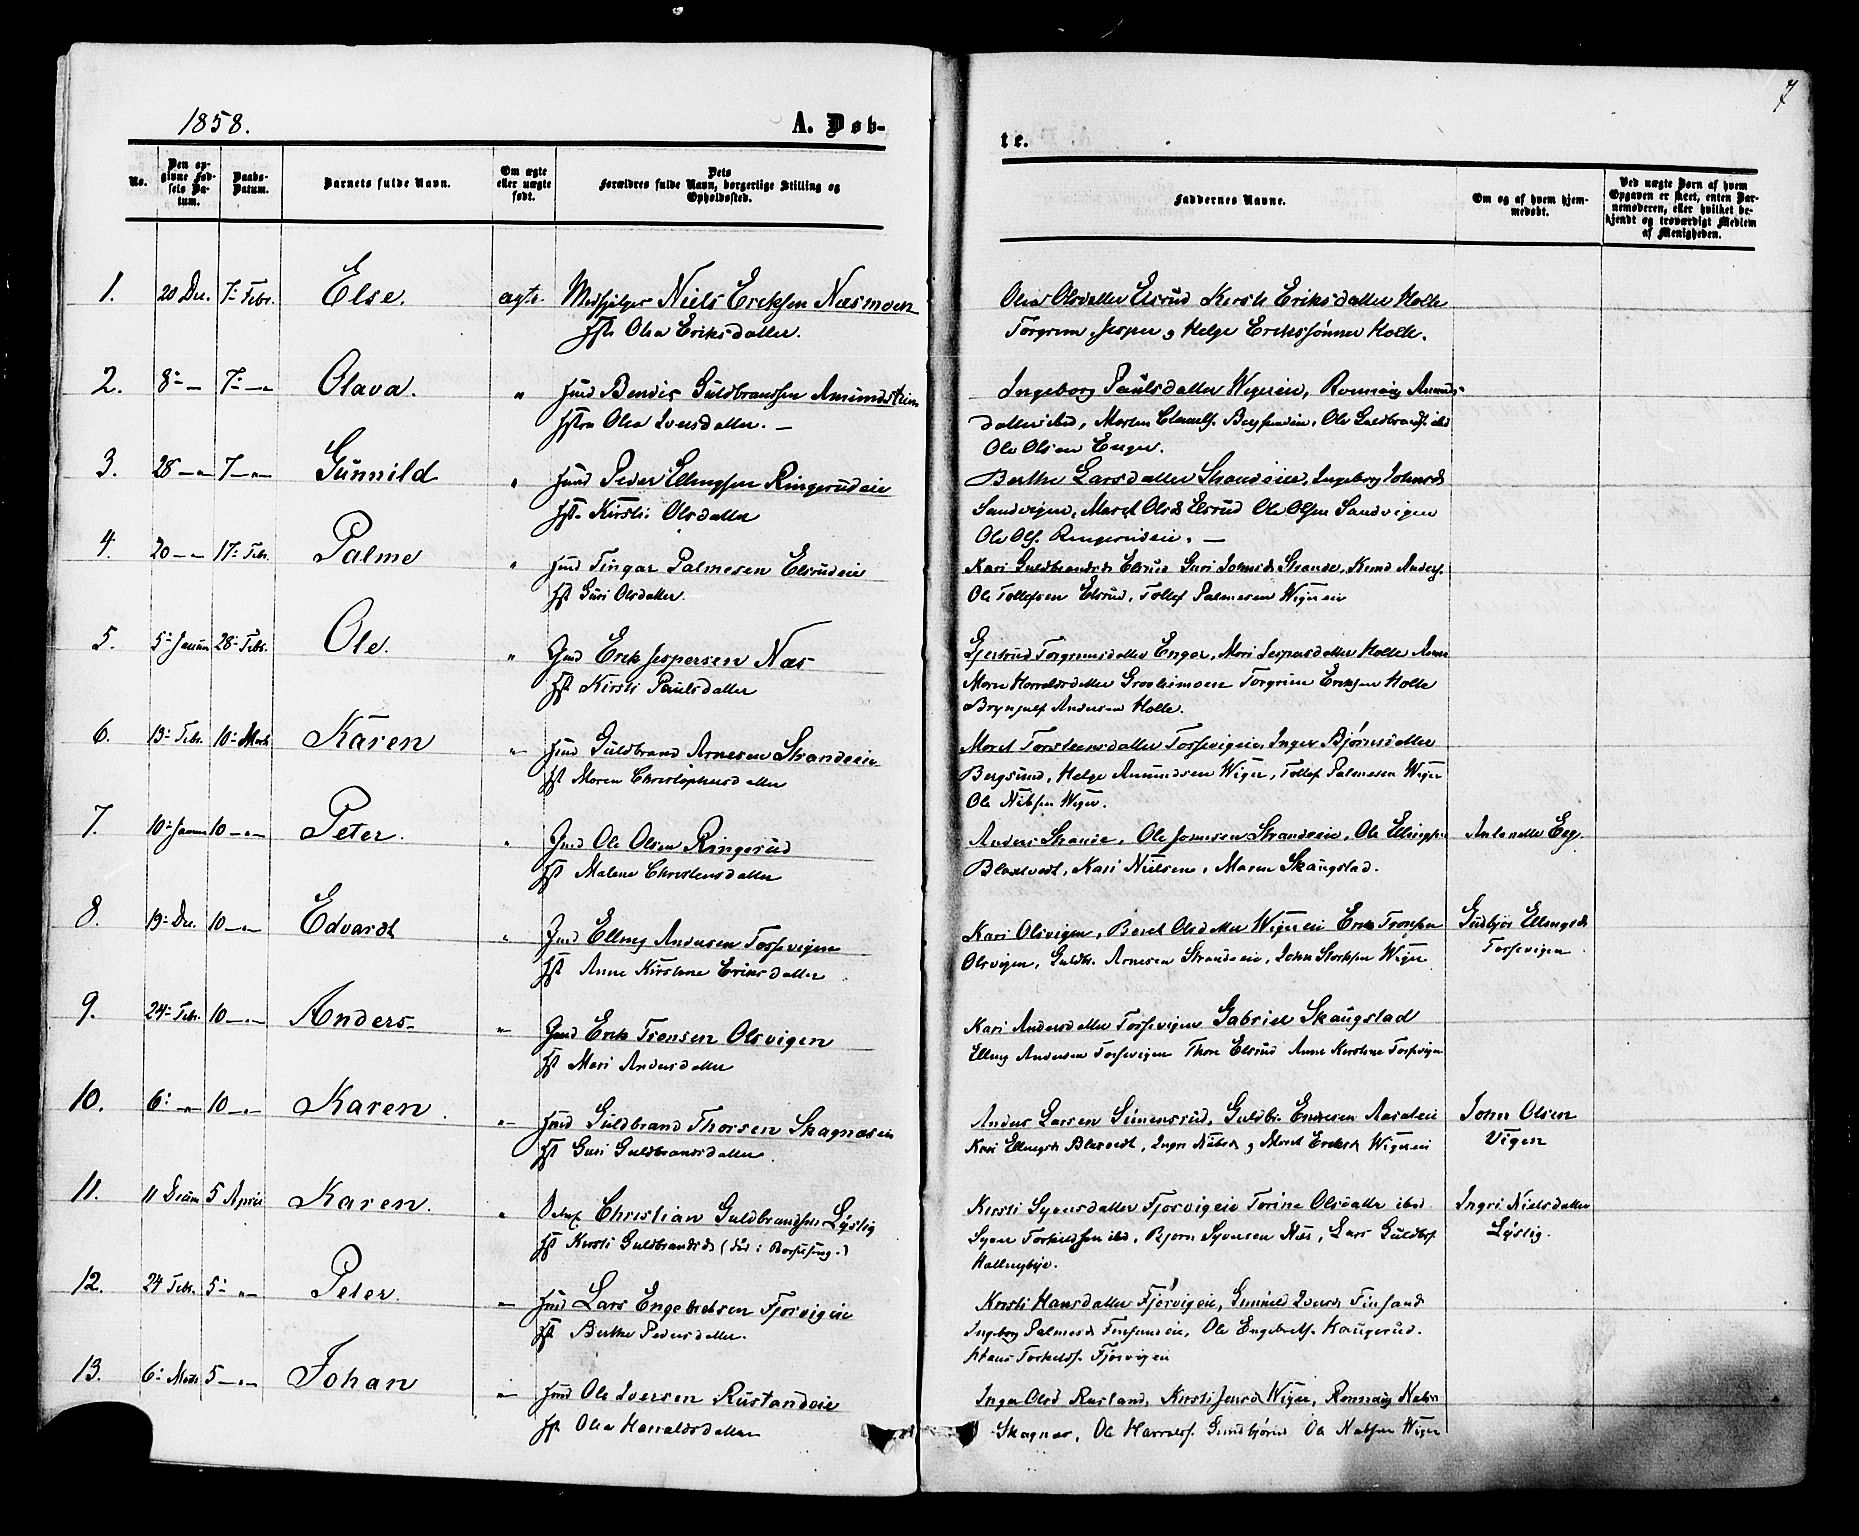 7
1858.
A. Døb-
te.
No.
Den op-
givne Fød-
sels Da-
tum.
Daabs-
Datum.
Barnets fulde Navn.
Om ægte
eller uægte
født.
Dets
Forældres fulde Navn, borgerlige Stilling og
Opholdssted.
Faddernes Navne.
Om og af hvem hjem-
medøbt.
Ved uægte Børn af hvem
Opgaven er skeet, enten Bar-
nemoderen, eller hvilket be-
kjendt og troværdigt Medlem
af Menigheden.
1. 20 Dec. 7- Febr. Else. ægte. Niels Ericksen Næsmoen
Olea Eriksdatter.
Olea Olsdatter Elsrud Kersti Eriksdatter Holte
Torgrim Jesper og Helge Erikssønner Holte.
2. 8- — 7- —"— Olava. " Bendic Guldbrandsen Amundstein
Olea Iversdatter. —
Ingeborg Paulsdatter Wigereie, Ronnaug Amunds-
datter ibid, Morten Ole Guldbrands. ibd
Ole Olsen Enger.
3. 28 —"— 7 —"— Gunnild " Peder Ellingsen Ringerudeie
Kirsti Olsdatter
Berthe Larsdatter Strandeie, Ingeborg Johnsd.
Sandvigen, Maret Olsd. Elsrud Ole Olsen Sandvigen
Ole Ols. Ringerudeie. —
4. 20 —"— 17- Febr. Palme " Fingar Palmesen Elsrudeie
Guri Olsdatter.
Kari Guldbrandsd. Elsrud Guri Johnsd. Strande, Knud Anders.
Ole Tollefsen Elsrud, Tollef Palmesen Wigereie
5. 5- Januar 28- Febr. Ole. " Erik Jespersen Næs
Kirsti Paulsdatter
Gjertrud Torgrimsdatter Enger, Mari Jespersdatter Holte Anne
Marie Harraldsdatter Torgrim Eriksen Holte
Brynjulf Andersen Holte.
6. 13- Febr. 10- Marts Karen " Guldbrand Arnesen Strandeie
Maren Christophersdatter
Maret Torsteensdatter Inger Bjørnsdatter
Bergsund, Helge Amundsen Wiger, Tollef Palmesen Wiger
Ole Nielsen Wiger.
7. 10- Januar 10 —"— Peter. " Ole Olsen Ringerud
Malene Christensdatter
Ole Strandeie, Ole Ellingsen
Kari Nielsen, Maren Skaugstad.
8. 19- Dec. 10 —"— Edvardt " Elling Andersen Torsevigen
Anne Kirstine Eriksdatter
Kari Olsvigen, Beret Olsdatter Wigereie Erik Tronsen
Olsvigen, Guldbr. Arnesen Strandeie, John Wiger
Gudbjør Ellingsd.
Torsevigen
9. 24- Febr. 10 —"— Anders- " Erik Tronsen Olsvigen
Mari Andersdatter
Kari Andersdatter Torsevigen Gabriel Skaugstad
Elling Andersen Torsevigen Thore Elsrud Anne Kirstine Torsevigen
10. 6- " 10 —"— Karen. " Guldbrand Thorsen Skagnæseie
Guri Guldbrandsdatter.
Anders Larsen Simensrud, Guldbr. Endresen
Kari Ellingsd. og Maret Eriksd. Wigereie
John Olsen
Vigen
11. 11 Januar 5 April Karen. " Christian Guldbrandsen Lyslig
Kersti Guldbrandsd.
Kersti Syversdatter Fjorvigeie Torine Olsdatter ibid.
Syver Torkildsen ibd, Bjørn Syversen Næs, Lars Guldbr.
Hallingbye.
Ingri Nielsdatter
Lyslig.
12. 24 Febr. 5- " Peter. — Lars Engebretsen Fjorvigeie
Berthe Pedersdatter.
Kersti Hansdatter Fjorvigeie, Gunnild Iversd. Finsand
Ingeborg Palmesd. Finsandeie, Ole Engebrets. Haugerud.
Hans Torkelds. Fjorvigeie
13. 6- Marts 5 —"— Johan " Ole Iversen Rustandeie
Olea Harraldsdatter
Inger Olsd. Rustand, Kersti Jensd. Wiger, Ronnaug Nielsd.
Skagnæs, Ole Harralds. Gundbjørud Ole Nielsen Wiger